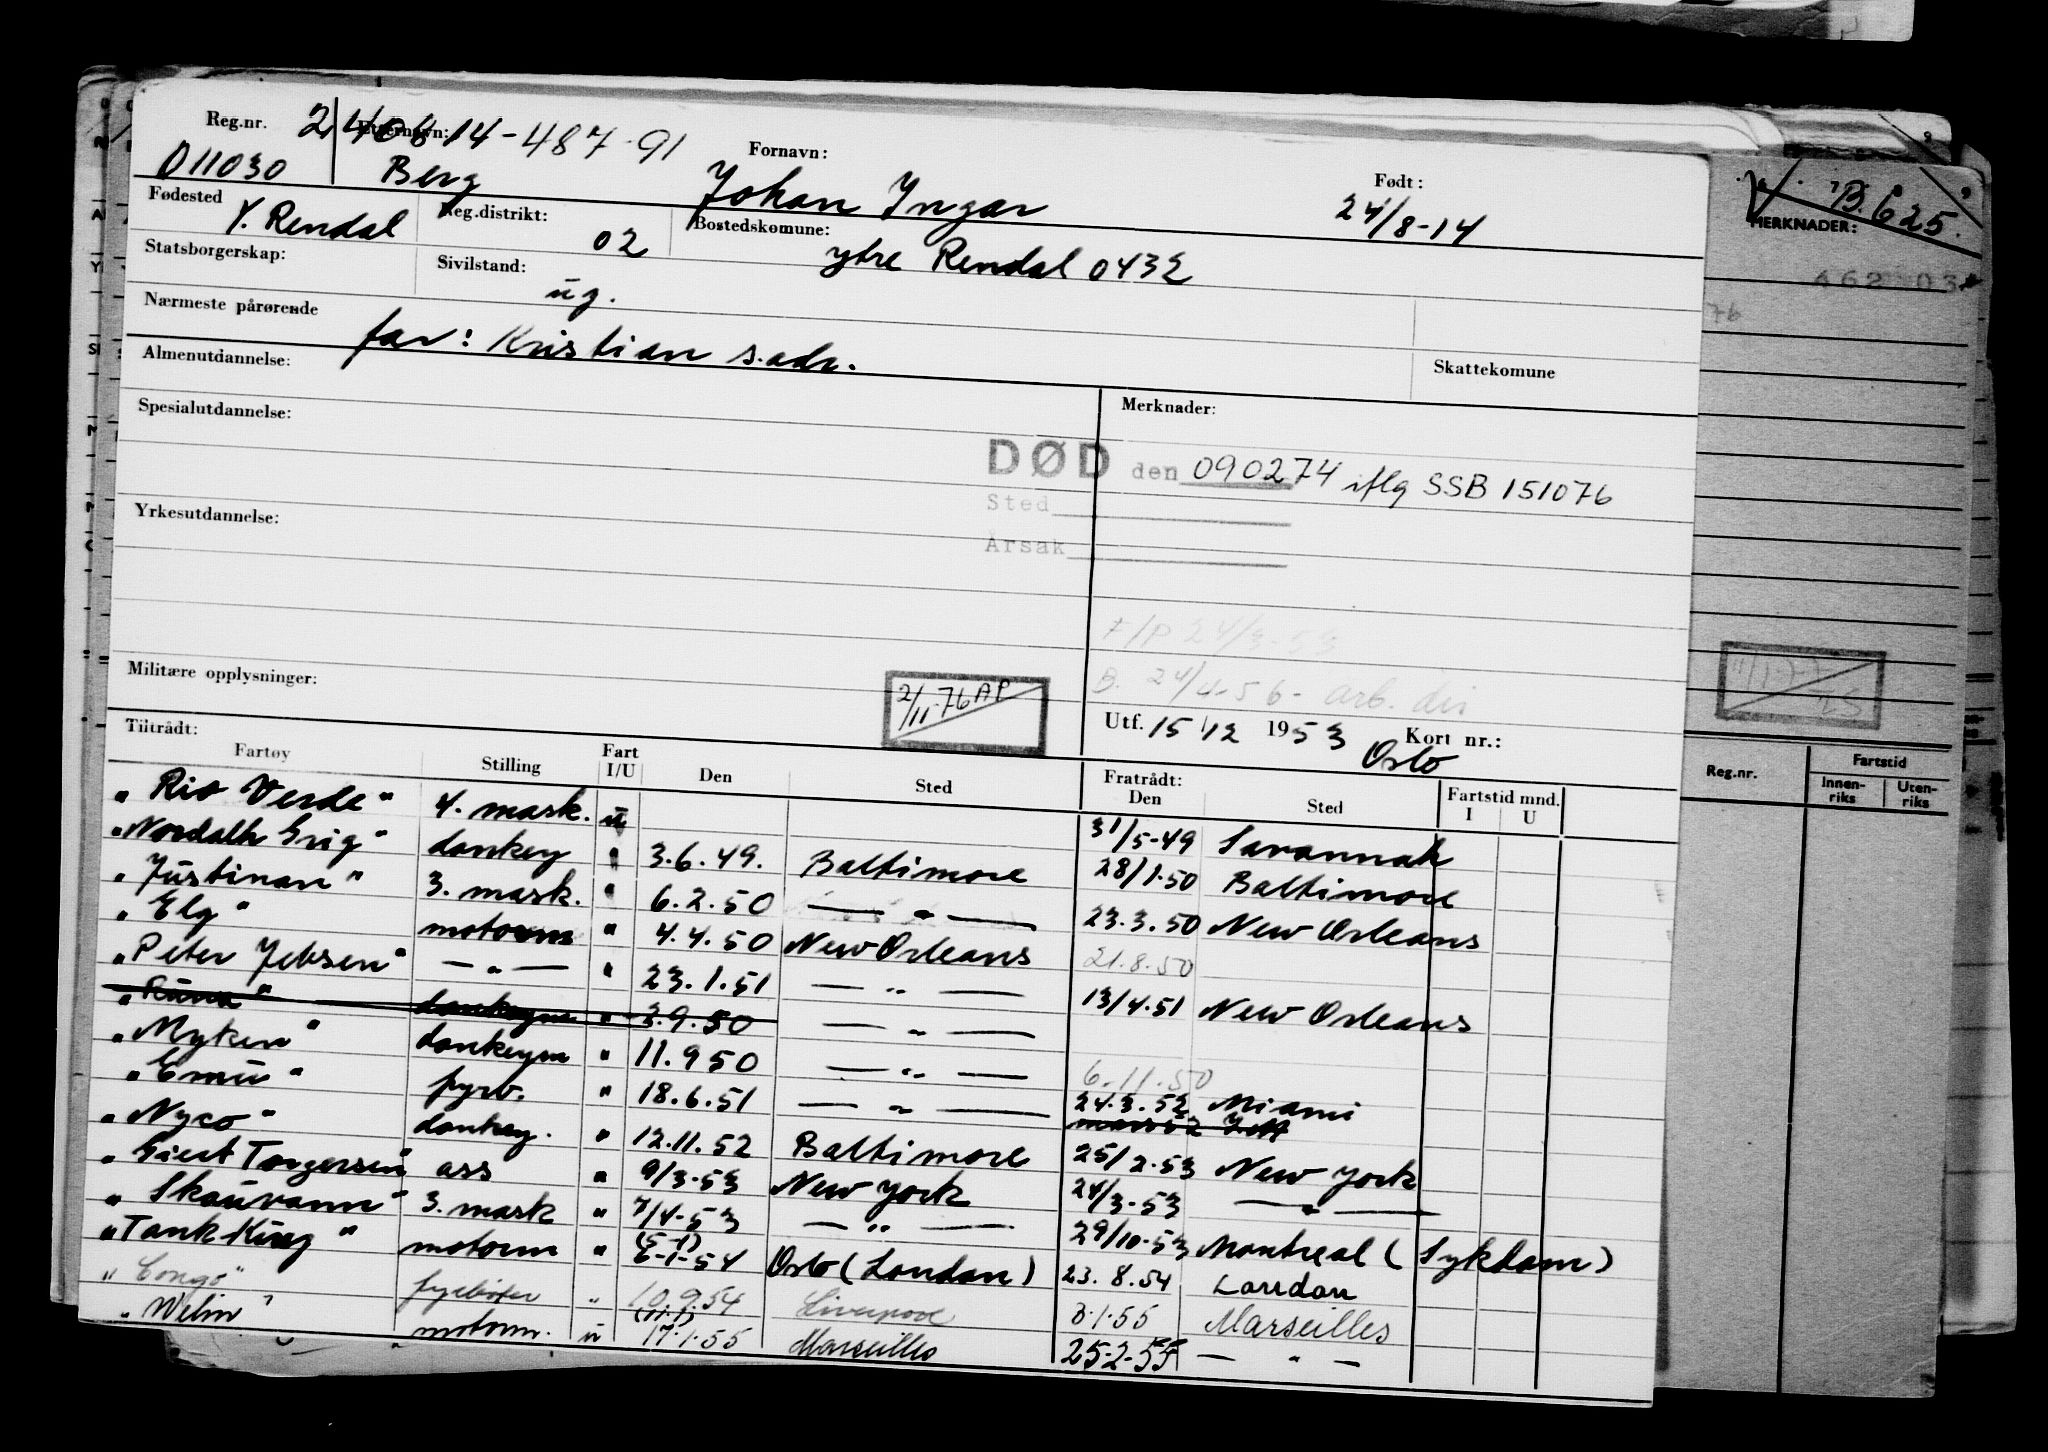 Reg.nr. Etternavn: Fornavn: Født:
14-487-91
011030 Berg Johan Ingar 24/8-14
Fødested Reg.distrikt: Bostedskomune:
Y. Rendal 02 ytre Rendal 0432
Statsborgerskap: Sivilstand: ug.
Nærmeste pårørende
far: Kristian s.adr.
Almenutdannelse: Skattekomune
Spesialutdannelse: Merknader:
DØD den 090274 iflg SSB 151076
Sted
Årsak
Yrkesutdannelse:
F/P 24/3-53
B. 24/4-56- arb. dir
Militære opplysninger:
2/11-76 AP
Utf. 15/12 1953 Kort nr.:
Oslo
Tiltrådt: Fratrådt:
Fartøy Stilling Fart I/U Den Sted Den Sted Fartstid mnd. I U
"Rio Verde" 4. mask. u 31/5-49 Savannah
"Nordalh Grig" donkey " 3.6.49. Baltimore 28/1.50 Baltimore
"Justinan" 3. mask. " 6.2.50 — " — 23.3.50 New Orleans
"Elg" motorm " 4.4.50 New Orleans 21.8.50
"Peter Jebsen" — " — " 23.1.51 — " — 13/4.51 New Orleans
"Runa" donkeym " 2.9.50 — " —
"Myken" donkeym " 11.9 50 — " — 6.11.50
"Emu" fyrb. " 18.6.51 — " — 24.3.52 Miami
"Nyco" donkey. " 12.11.52 Baltimore 25/2.53 New York
"Giert Torgersen" ass " 9/3-53 New York 24/3-53 — " —
"Skauvann" 3. mask " 7/4-53 — " — 29/10-53 Montreal (Sykdom)
"Tank King" motorm " (5-1) 6-1-54 Oslo (London) 23.8.54 London
"Congo" fyrbøter " 10.9.54 Liverpool 8.1.55 Marseilles
"Welin" motorm. u (11.1) 17.1.55 Marseilles 25-2-55 — " —
B.625.
MERKNADER:
Reg.nr. Fartstid
Innenriks Utenriks